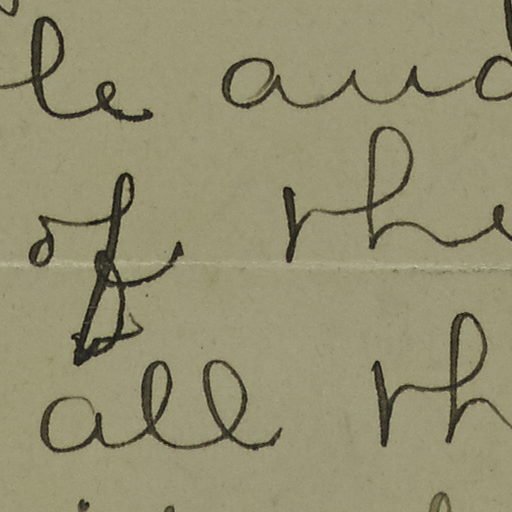 le and
of the
all th